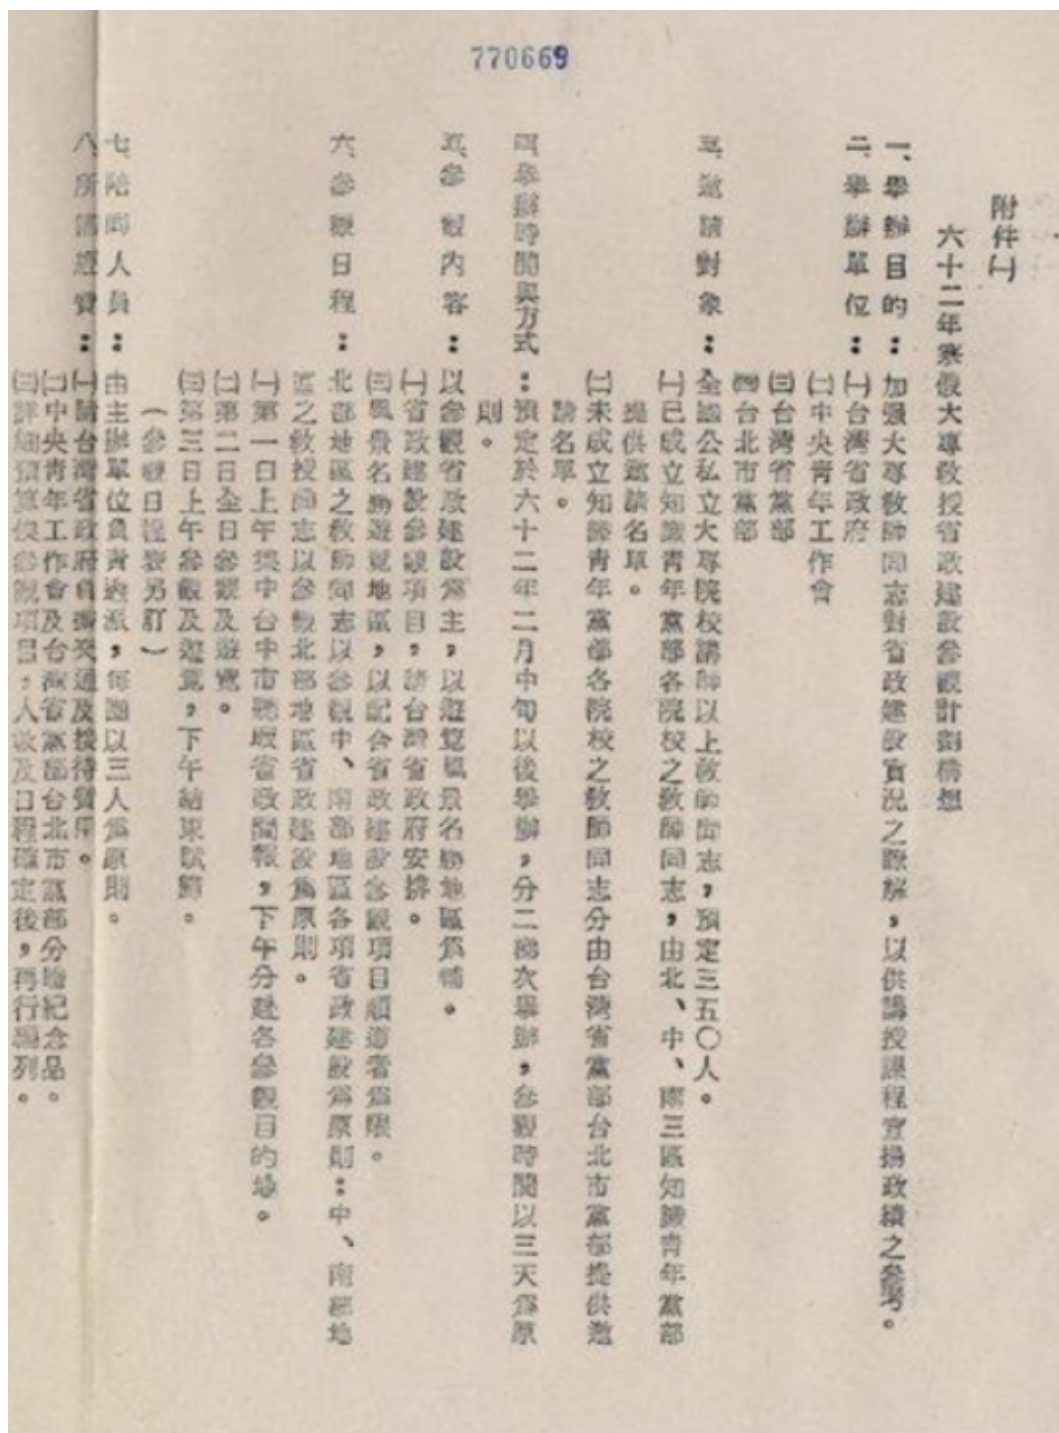 770669
附件㈠
六十二年寒假大專教授省政建設參觀計劃構想
一、舉辦目的：加强大專教師同志對省政建設實況之瞭解，以供講授課程宣揚政績之參考。
二、舉辦單位：㈠台灣省政府
㈡中央青年工作會
㈢台灣省黨部
㈣台北市黨部
三、邀請對象：全國公私立大專院校講師以上教師同志，預定三五〇人。
㈠已成立知識青年黨部各院校之教師同志，由北、中、南三區知識青年黨部
提供邀請名單。
㈡未成立知識青年黨部各院校之教師同志分由台灣省黨部台北市黨部提供邀
請名單。
四、舉辦時間與方式：預定於六十二年二月中旬以後舉辦，分二梯次舉辦，參觀時間以三天爲原
則。
五、參觀內容：以參觀省政建設爲主，以遊覽風景名勝地區爲輔。
㈠省政建設參觀項目，請台灣省政府安排。
㈡風景名勝遊覽地區，以配合省政建設參觀項目順道者爲限。
六、參觀日程：北部地區之教師同志以參觀中、南部地區各項省政建設爲原則：中、南部地
區之教授同志以參觀北部地區省政建設爲原則。
㈠第一日上午集中台中市聽取省政簡報，下午分赴各參觀目的地。
㈡第二日全日參觀及遊覽。
㈢第三日上午參觀及遊覽，下午結束賦歸。
（參觀日程表另訂）
七、陪同人員：由主辦單位負責遴派，每團以三人爲原則。
八、所需經費：㈠請台灣省政府負擔交通及接待費用。
㈡中央青年工作會及台灣省黨部台北市黨部分贈紀念品。
㈢詳細預算俟參觀項目，人數及日程確定後，再行編列。